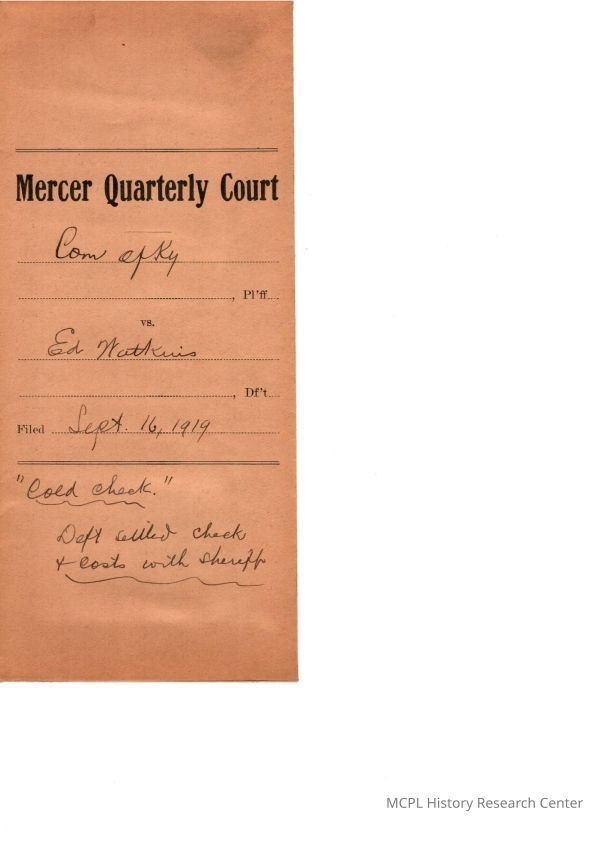 Mercer Quarterly Court
Com of Ky
, Pl'ff.
vs.
Ed Watkins
, Df't.
Filed Sept. 16, 1919
"Cold check."
Deft settled check
+ costs with sheriff
MCPL History Research Center